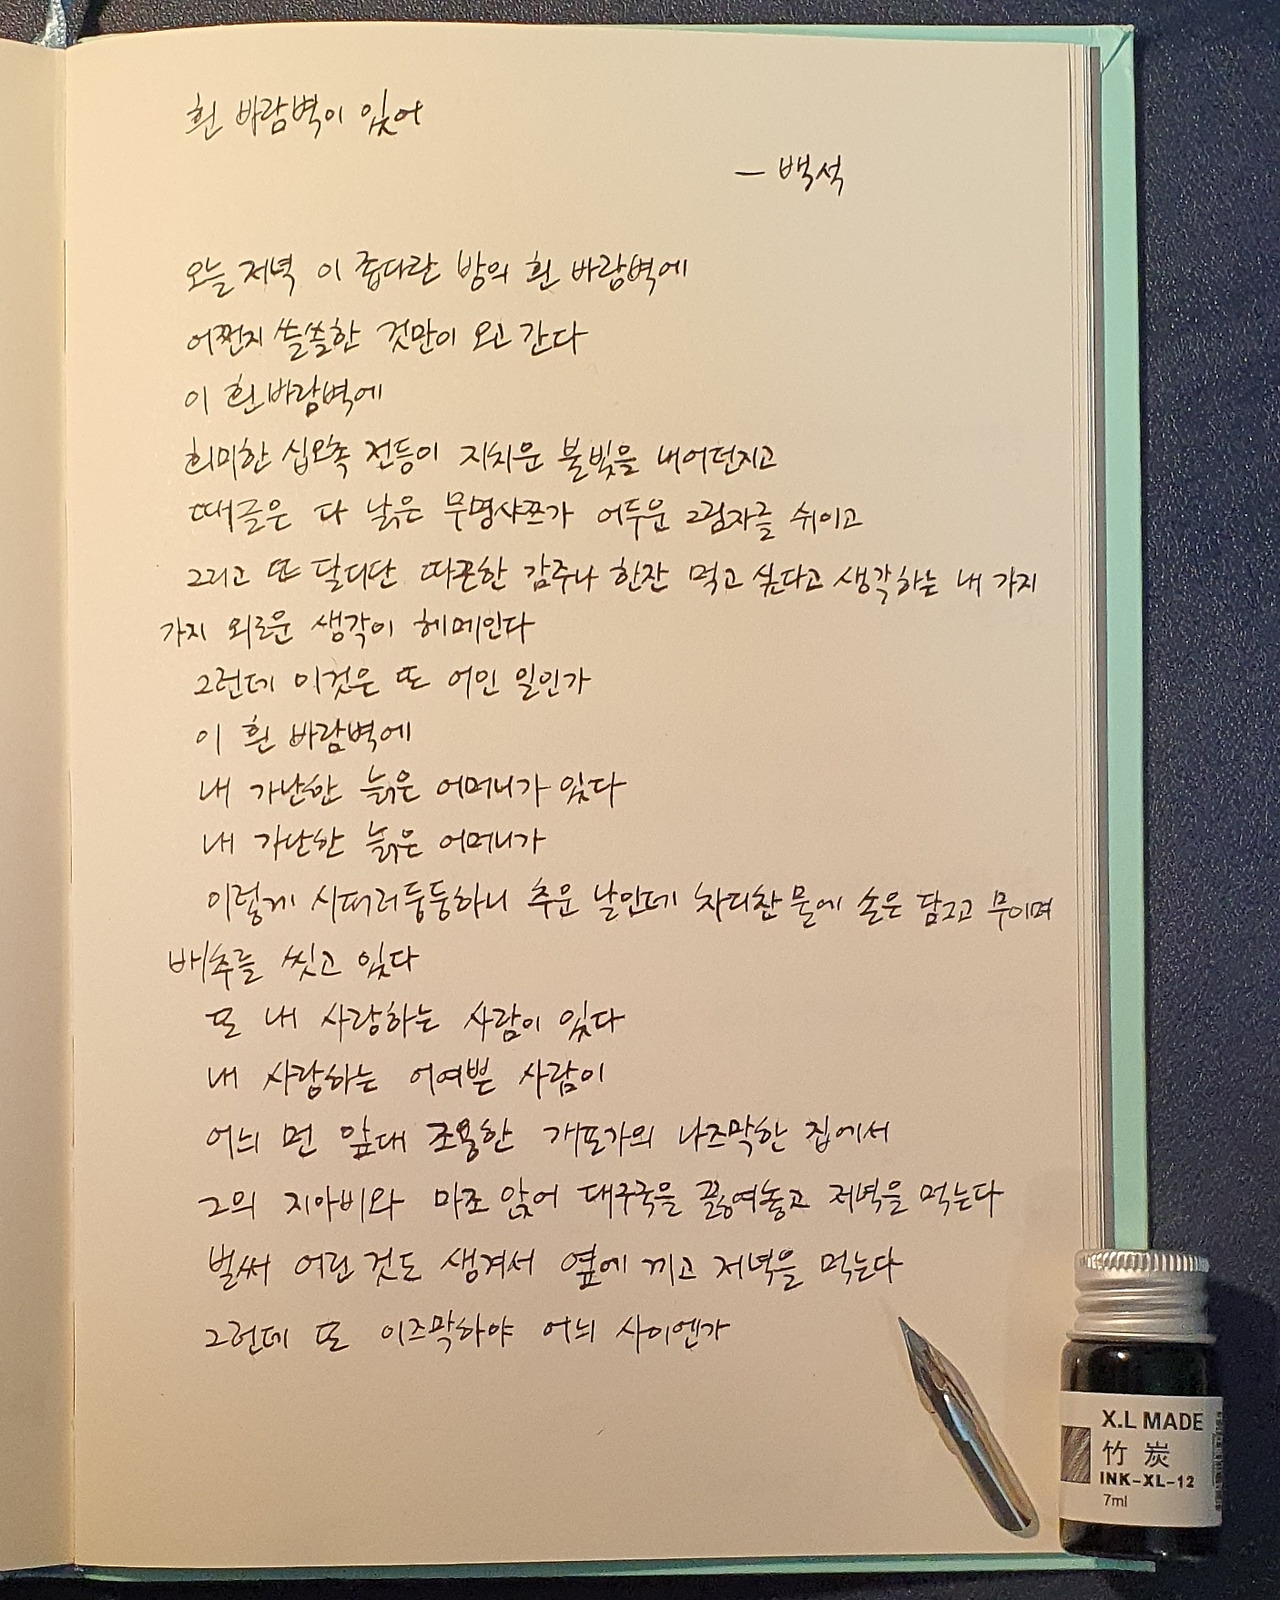 흰 바람벽이 있어
— 백석
오늘 저녁 이 좁다란 방의 흰 바람벽에
어쩐지 쓸쓸한 것만이 오고 간다
이 흰 바람벽에
희미한 십오촉 전등이 지치운 불빛을 내어던지고
때글은 다 낡은 무명샤쯔가 어두운 그림자를 쉬이고
그리고 또 달디단 따끈한 감주나 한잔 먹고 싶다고 생각하는 내 가지
가지 외로운 생각이 헤메인다
그런데 이것은 또 어인 일인가
이 흰 바람벽에
내 가난한 늙은 어머니가 있다
내 가난한 늙은 어머니가
이렇게 시퍼러둥둥하니 추운 날인데 차디찬 물에 손은 담그고 무이며
배추를 씻고 있다
또 내 사랑하는 사람이 있다
내 사랑하는 어여쁜 사람이
어늬 먼 앞대 조용한 개포가의 나즈막한 집에서
그의 지아비와 마조 앉어 대구국을 끓여놓고 저녁을 먹는다
벌써 어린 것도 생겨서 옆에 끼고 저녁을 먹는다
그런데 또 이즈막하야 어늬 사이엔가
X.L MADE
竹 炭
INK-XL-12
7ml